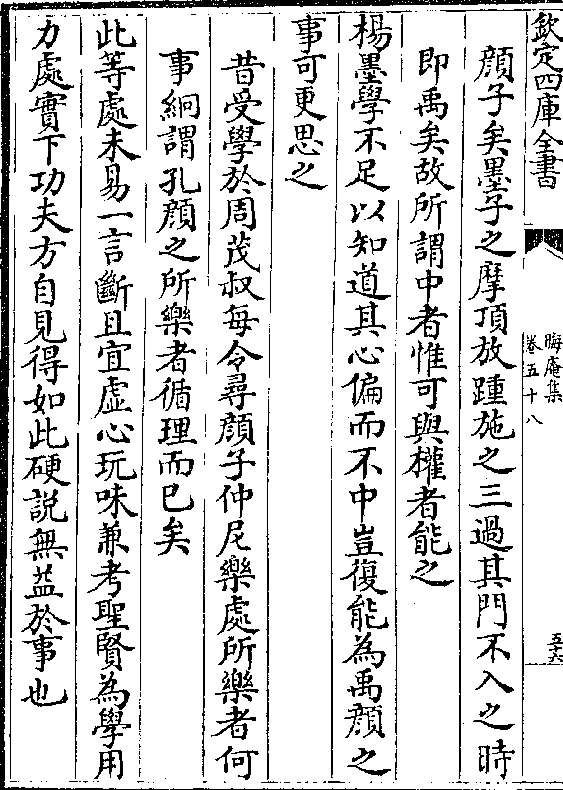 欽定四庫全書
晦庵集
卷五十八
五十六
顔子矣墨子之摩頂放踵施之三過其門不入之時
即禹矣故所謂中者惟可與權者能之
楊墨學不足以知道其心偏而不中豈復能為禹顔之
事可更思之
昔受學於周茂叔每令尋顔子仲尼樂處所樂者何
事絅謂孔顔之所樂者循理而已矣
此等處未易一言斷且宜虚心玩味兼考聖賢為學用
力處實下功夫方自見得如此硬説無益於事也